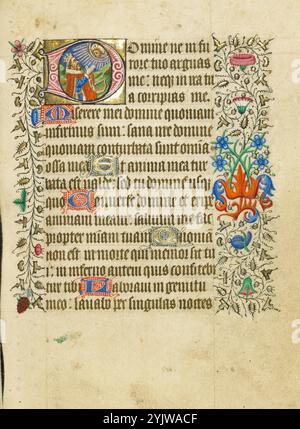 Domine ne in fu
rore tuo arguas
me: neqz in ira tu
a corripias me.
Miserere mei domine quoniam
infirmus sum: sana me domine
quoniam conturbata sunt omnia
ossa mea Et anima mea tur
bata est valde: sed tu domine usqz
quo Convertere domine et eripe
animam meam: salvum me fac
propter misericordiam tuam Quoniam
non est in morte qui memor sit tu
i: in inferno autem quis confitebi
tur tibi Laboravi in gemitu
meo: lavabo per singulas noctes
alamy
Image ID: 2YJWACF
www.alamy.com